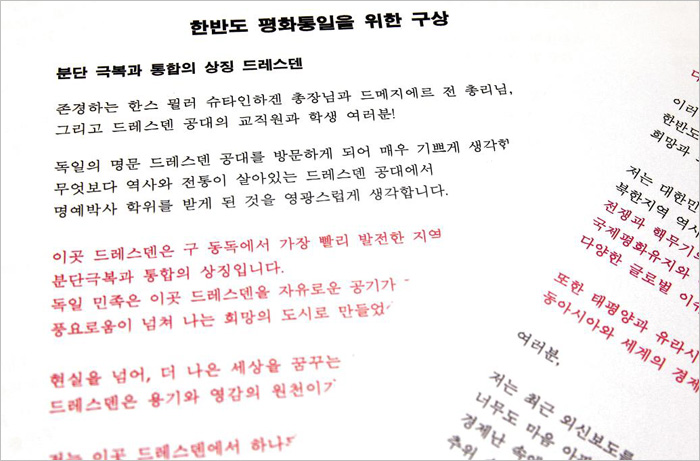 한반도 평화통일을 위한 구상
분단 극복과 통합의 상징 드레스덴
존경하는 한스 뮐러 슈타인하겐 총장님과 드메지에르 전 총리님,
그리고 드레스덴 공대의 교직원과 학생 여러분!
독일의 명문 드레스덴 공대를 방문하게 되어 매우 기쁘게 생각
무엇보다 역사와 전통이 살아있는 드레스덴 공대에서
명예박사 학위를 받게 된 것을 영광스럽게 생각합니다.
이곳 드레스덴은 구 동독에서 가장 빨리 발전한 지역
분단극복과 통합의 상징입니다.
독일 민족은 이곳 드레스덴을 자유로운 공기가
풍요로움이 넘쳐 나는 희망의 도시로 만들었
현실을 넘어, 더 나은 세상을 꿈꾸는
드레스덴은 용기와 영감의 원천이
저는 이곳 드레스덴에서 하나
이러
한반도
희망과
저는 대한민
북한지역 역사
전쟁과 핵무기의
국제평화유지와
다양한 글로벌 이슈
또한 태평양과 유라시
동아시아와 세계의 경제
여러분,
저는 최근 외신보도를
너무도 마음 아픈
경제난 속에
추위 속